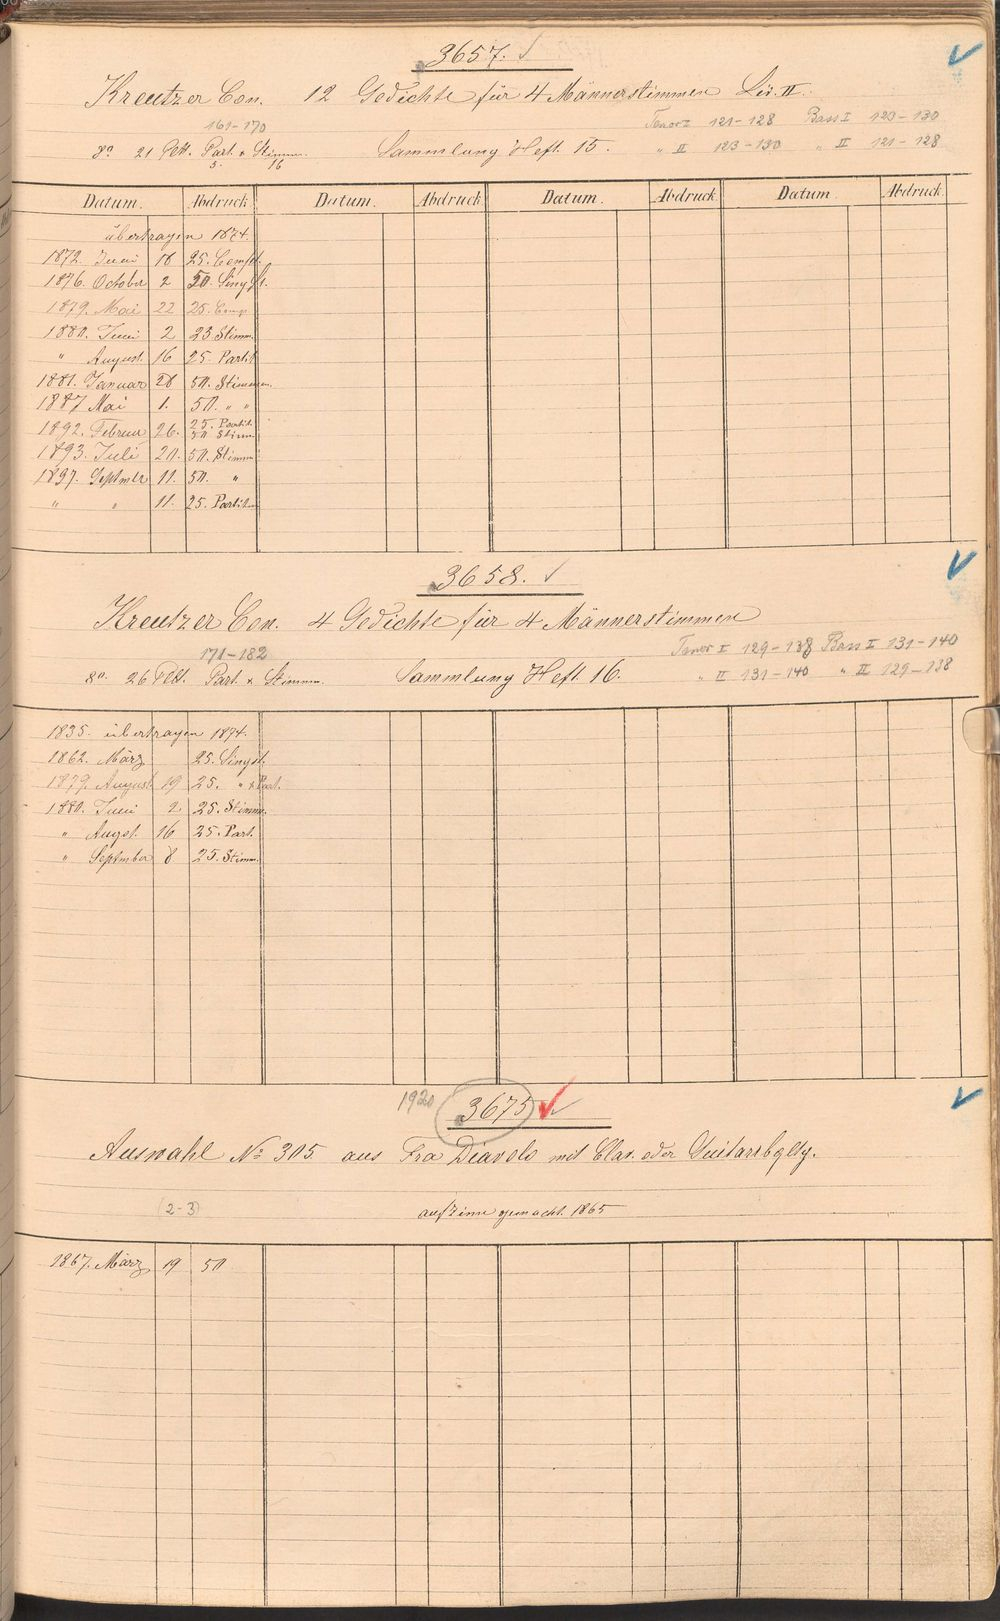 3657.
Kreutzer Con. 12 Gedichte für 4 Männerstimmen Liv. II.
161-170 Tenor I 121-128 Bass I 123-130
8° 21 Pltt. Part. & Stimm. Sammlung Heft 15. " II 123-130 " II 121-128
5. 16
Datum. Abdruck Datum. Abdruck Datum. Abdruck Datum. Abdruck
übertragen 1874.
1872. Juni 18 25. Compl.
1876. October 2 50. Singst.
1879. Mai 22 25. Comp.
1880. Juni 2 23. Stimm.
" August. 16 25. Partit
1881. Januar 28 50. Stimmen.
1887 Mai 1. 50. " "
1892. Februar 26. 25. Partit.
50 Stimm.
1893. Juli 20. 50. Stimm.
1897. September 11. 50. "
" " 11. 25. Partitur
3658.
Kreutzer Con. 4 Gedichte für 4 Männerstimmen
171-182 Tenor I 129-138 Bass I 131-140
8° 26 Pltt. Part. & Stimm. Sammlung Heft 16. " II 131-140 " II 129-138
1835. übertragen 1874.
1862. März 25. Singst.
1879. August 19 25. " & Part.
1880. Juni 2 25. Stimm.
" Augst. 16 25. Part.
" September 8 25. Stimm.
1920 3675
Auswahl No 305 aus Fra Diavolo mit Clav. oder Guitarrbgltg.
(2-3) auf Zinn gemacht. 1865
1867. März 19 50